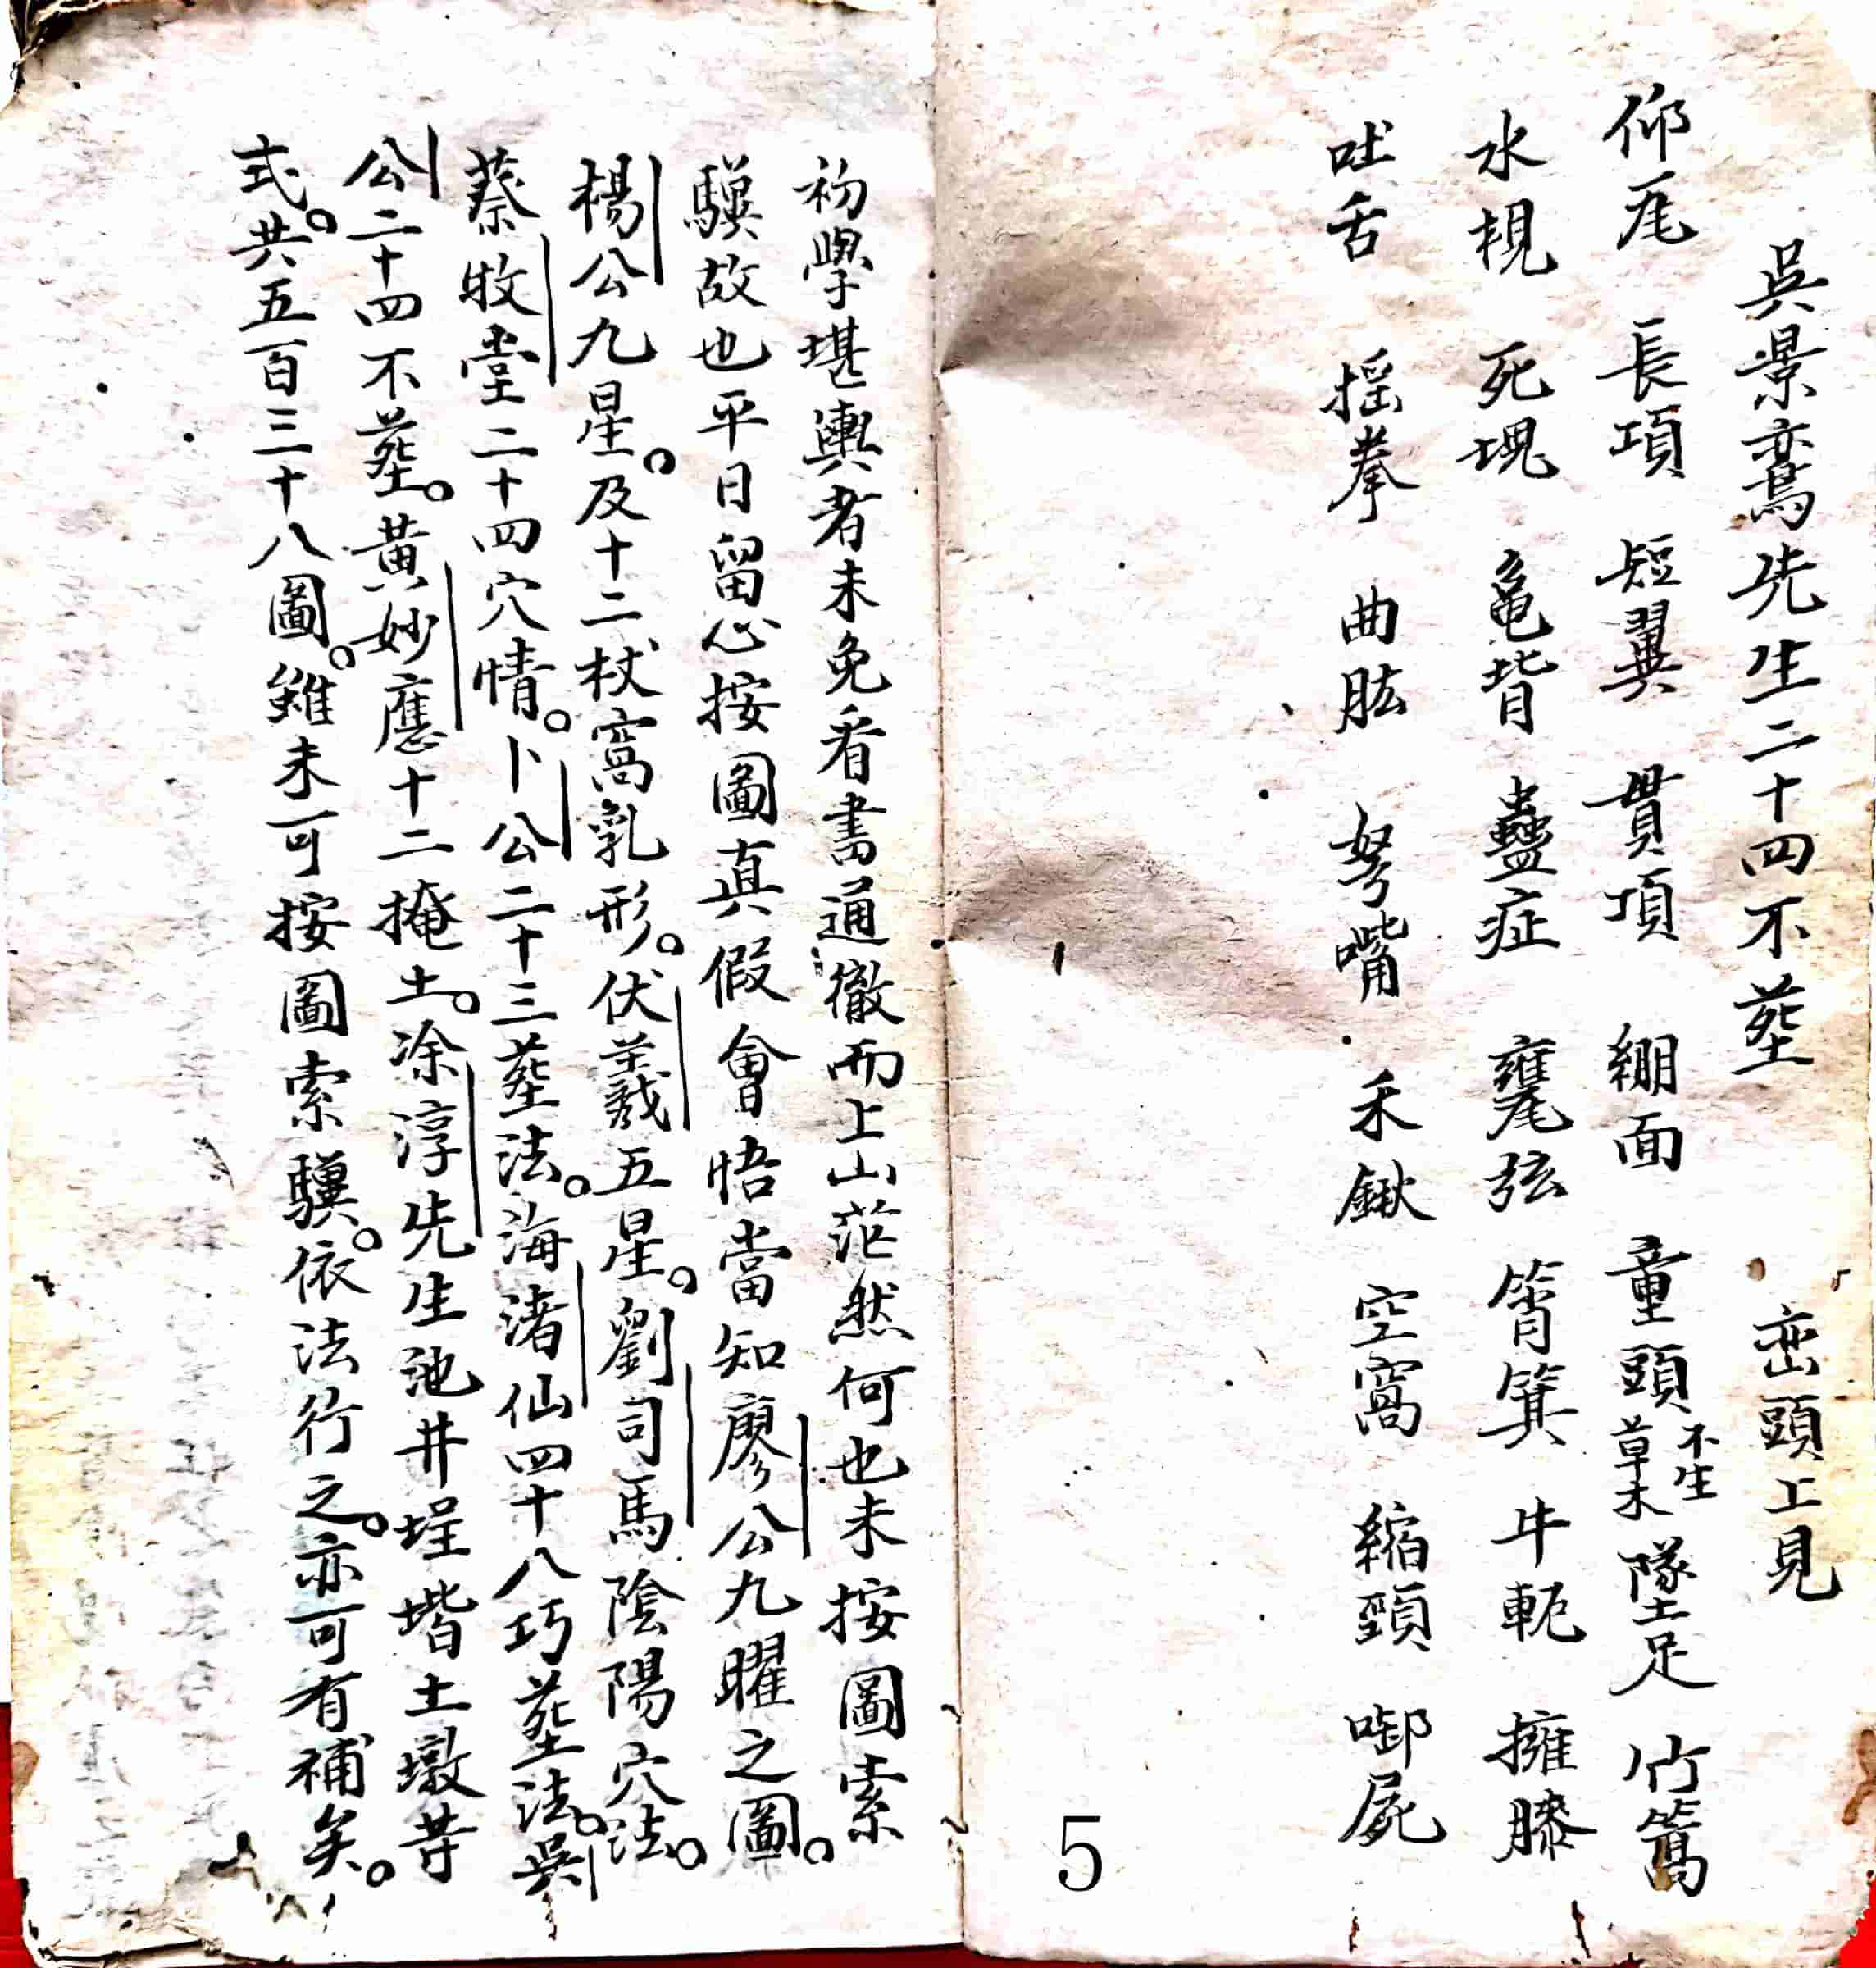 吳景鸞先生二十四不塟　巒頭上見
仰尾　長項　短翼　貫項　繃面　童頭不生草木　墜足　竹篙
水梘　死塊　龜背　蠱症　甕弦　筲箕　牛軛　擁膝
吐舌　搖拳　曲肱　努嘴　禾鍬　空窩　縮頸　啣屍
5
初學堪輿者未免看書通徹而上山茫然何也未按圖索
驥故也平日留心按圖真假會悟當知廖公九曜之圖。
楊公九星。及十二杖窩乳形。伏羲五星。劉司馬陰陽穴法。
蔡牧堂二十四穴情。卜公二十三塟法。海渚仙四十八巧塟法。吳
公二十四不塟。黃妙應十二掩土。凃淳先生池井埕堦土墩等
式。共五百三十八圖。雖未可按圖索驥。依法行之。亦可有補矣。